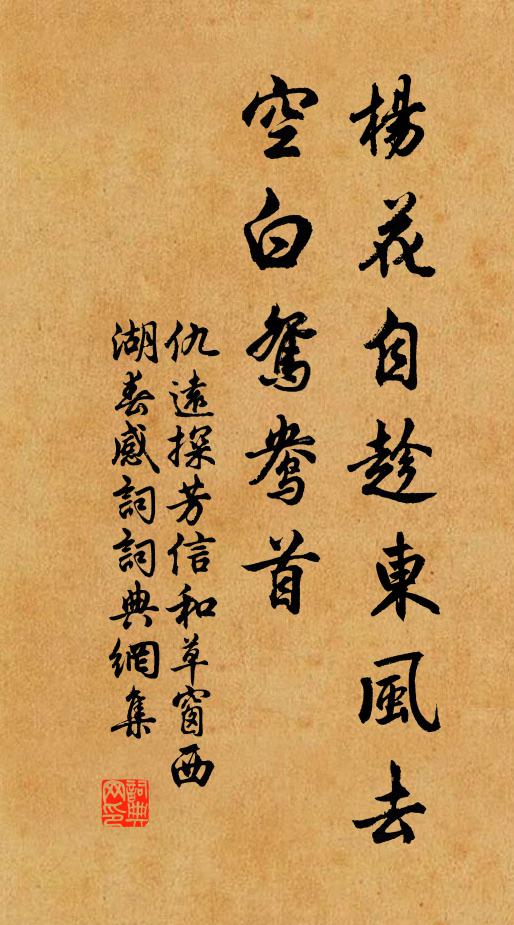 楊花自趁東風去
空白鴛鴦首
仇遠探芳信和草窗西
湖春感詞詞典網集
詞典网印